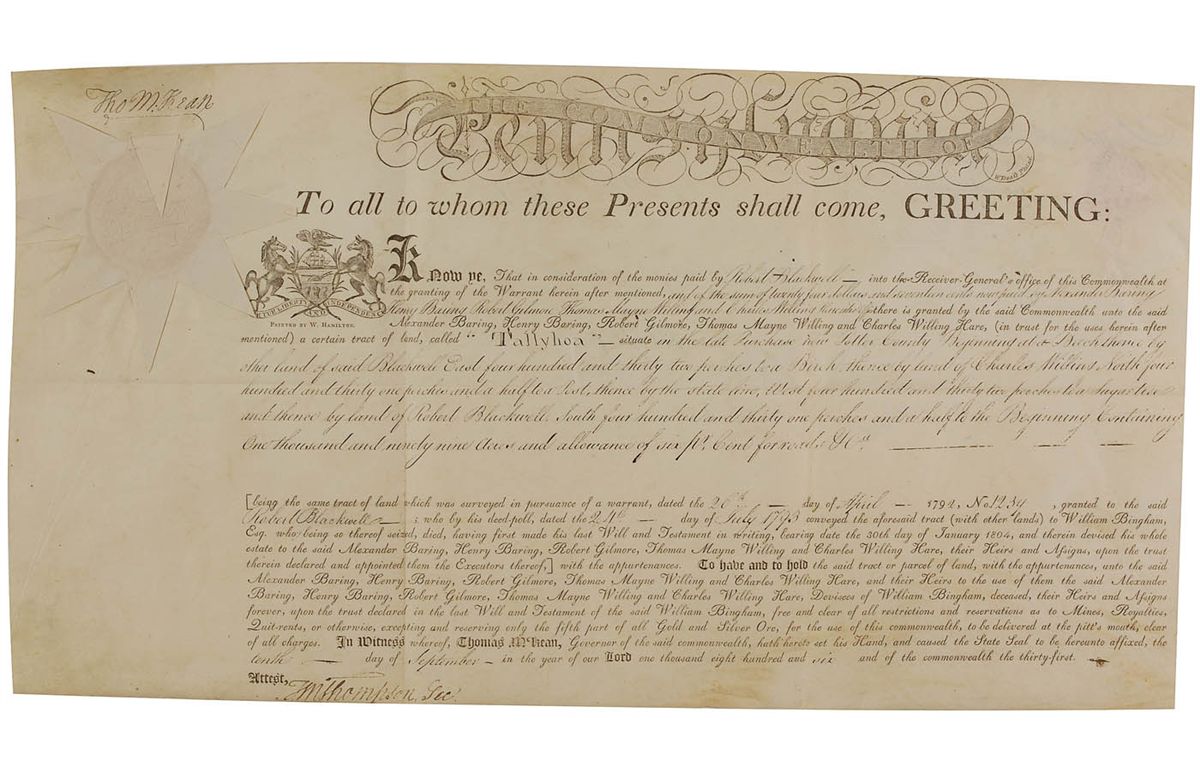 Tho M:Kean
THE COMMONWEALTH OF
Pennsylvania
To all to whom these Presents shall come, GREETING:
VIRTUE LIBERTY AND INDEPENDENCE
PRINTED BY W. HAMILTON.
Know ye, That in consideration of the monies paid by Robert Blackwell — into the Receiver-General's office of this Commonwealth at
the granting of the Warrant herein after mentioned, and of the sum of twenty four dollars and seventeen cents now paid by Alexander Baring
Henry Baring Robert Gilmor Thomas Mayne Willing and Charles Willing Hare there is granted by the said Commonwealth unto the said
Alexander Baring, Henry Baring, Robert Gilmore, Thomas Mayne Willing and Charles Willing Hare, (in trust for the uses herein after
mentioned) a certain tract of land, called "Tallyhoa" — situate in the late Purchase now Potter County Beginning at a Beech thence by
other land of said Blackwell East four hundred and thirty two perches to a Birch, thence by land of Charles North four
hundred and thirty one perches and a half to a Post, thence by the state line, West four hundred and thirty two perches to a Sugartree
and thence by land of Robert Blackwell South four hundred and thirty one perches and a half to the Beginning Containing
One thousand and ninety nine Acres and allowance of six pr. Cent for roads &Ca. — — —
[being the same tract of land which was surveyed in pursuance of a warrant, dated the — day of April — 1794, No 1234, granted to the said
Robert Blackwell — ; who by his deed-poll, dated the 24th — day of July 1793 conveyed the aforesaid tract (with other lands) to William Bingham,
Esq. who being so thereof seized, died, having first made his last Will and Testament in writing, bearing date the 30th day of January 1804, and therein devised his whole
estate to the said Alexander Baring, Henry Baring, Robert Gilmore, Thomas Mayne Willing and Charles Willing Hare, their Heirs and Assigns, upon the trust
therein declared and appointed them the Executors thereof,] with the appurtenances. To have and to hold the said tract or parcel of land, with the appurtenances, unto the said
Alexander Baring, Henry Baring, Robert Gilmore, Thomas Mayne Willing and Charles Willing Hare, and their Heirs to the use of them the said Alexander
Baring, Henry Baring, Robert Gilmore, Thomas Mayne Willing and Charles Willing Hare, Devisees of William Bingham, deceased, their Heirs and Assigns
forever, upon the trust declared in the last Will and Testament of the said William Bingham, free and clear of all restrictions and reservations as to Mines, Royalties,
Quit-rents, or otherwise, excepting and reserving only the fifth part of all Gold and Silver Ore, for the use of this commonwealth, to be delivered at the pitt's mouth, clear
of all charges. In Witness whereof, Thomas M'Kean, Governor of the said commonwealth, hath hereto set his Hand, and caused the State Seal to be hereunto affixed, the
tenth — day of September — in the year of our Lord one thousand eight hundred and six and of the commonwealth the thirty-first.
Attest,
TM Thompson, Sec.